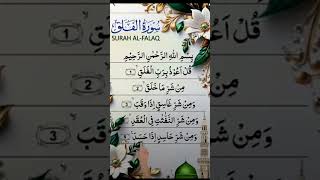 سُورَةُ الْفَلَقِ
SURAH AL-FALAQ
بِسْمِ اللهِ الرَّحْمٰنِ الرَّحِيْمِ
قُلْ اَعُوْذُ بِرَبِّ الْفَلَقِ ①
مِنْ شَرِّ مَا خَلَقَ ②
وَمِنْ شَرِّ غَاسِقٍ اِذَا وَقَبَ ③
وَمِنْ شَرِّ النَّفّٰثٰتِ فِي الْعُقَدِ
وَمِنْ شَرِّ حَاسِدٍ اِذَا حَسَدَ